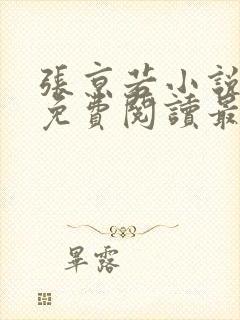 張京若小說
免費閱讀最
畢露